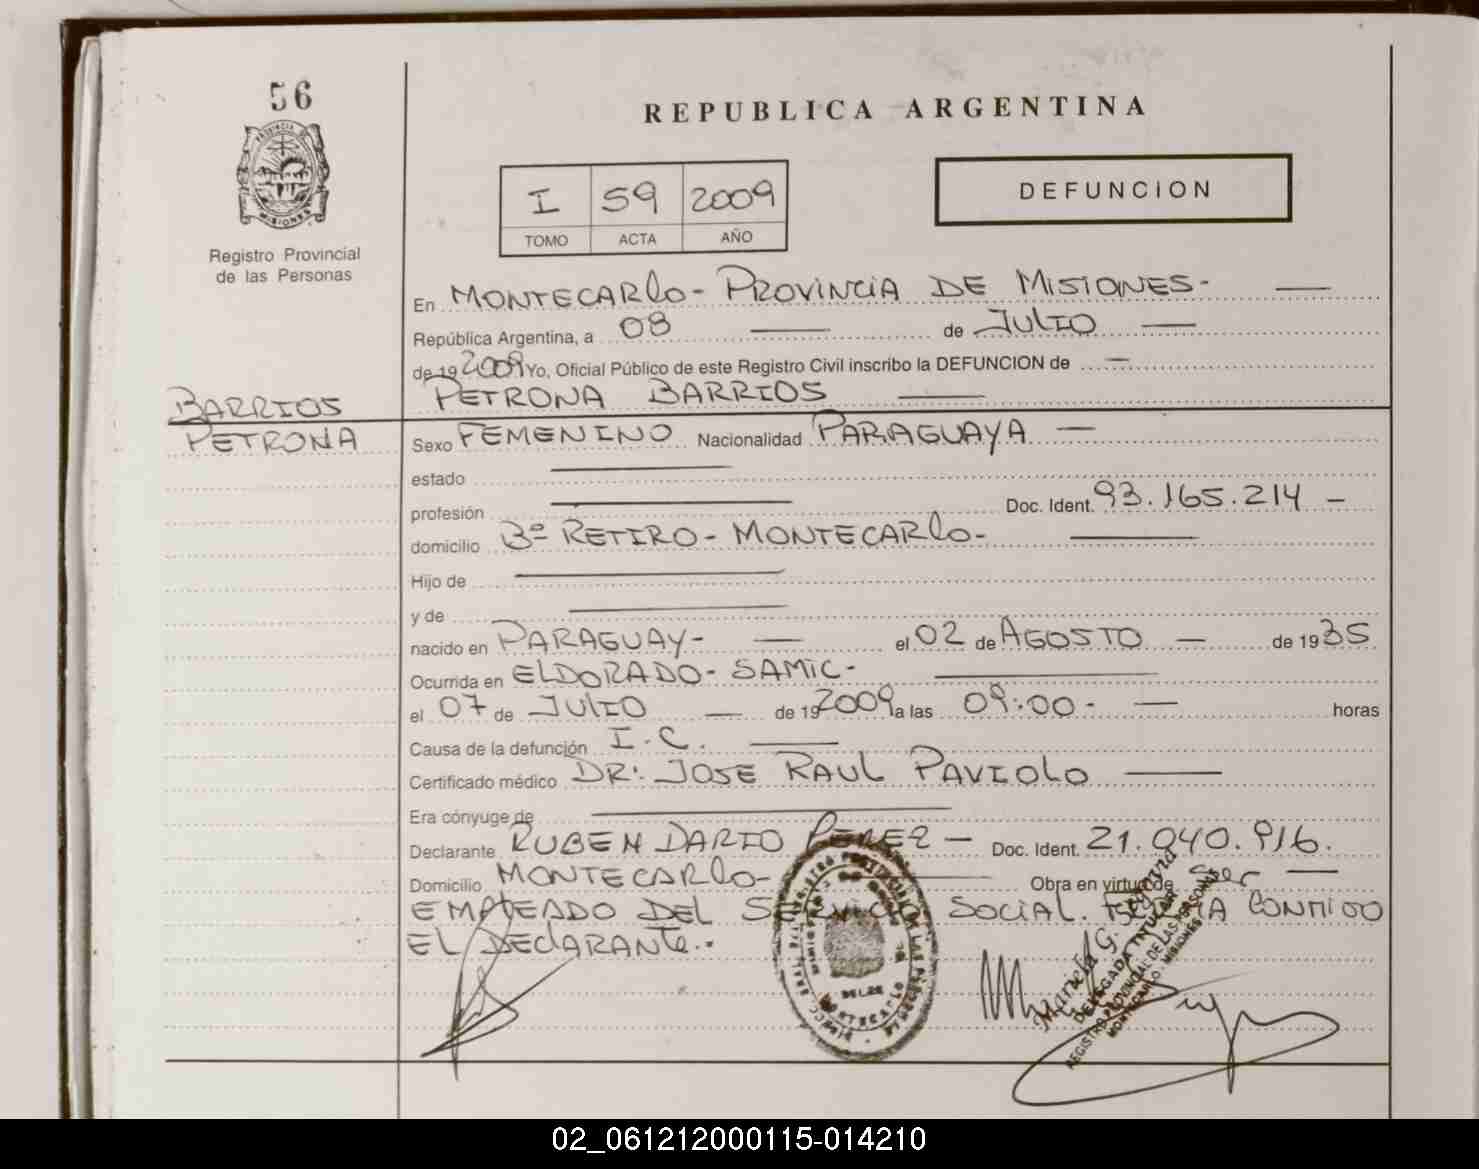 56
REPUBLICA ARGENTINA
PROVINCIA DE
MISIONES
Registro Provincial
de las Personas
I 59 2009
TOMO ACTA AÑO
DEFUNCION
En MONTECARLO - PROVINCIA DE MISIONES -
República Argentina, a 08 de JULIO
de 19 2009 Yo, Oficial Público de este Registro Civil inscribo la DEFUNCION de
BARRIOS PETRONA BARRIOS
PETRONA Sexo FEMENINO Nacionalidad PARAGUAYA
estado
profesión Doc. Ident. 93.165.214 -
domicilio Bº RETIRO - MONTECARLO -
Hijo de
y de
nacido en PARAGUAY - el 02 de AGOSTO de 19 35
Ocurrida en ELDORADO - SAMIC -
el 07 de JULIO de 19 2009 a las 09:00 - horas
Causa de la defunción I.C.
Certificado médico DR: JOSE RAUL PAVIOLO
Era cónyuge de
Declarante RUBEN DARIO PEREZ - Doc. Ident. 21.040.916.
Domicilio MONTECARLO - Obra en virtud de Ser
EMPLEADO DEL SERVICIO SOCIAL. CONMIGO
EL DECLARANTE.
Mariela G. Segovia
DELEGADA TITULAR
REGISTRO PROVINCIAL DE LAS PERSONAS
MONTECARLO - MISIONES
02_061212000115-014210